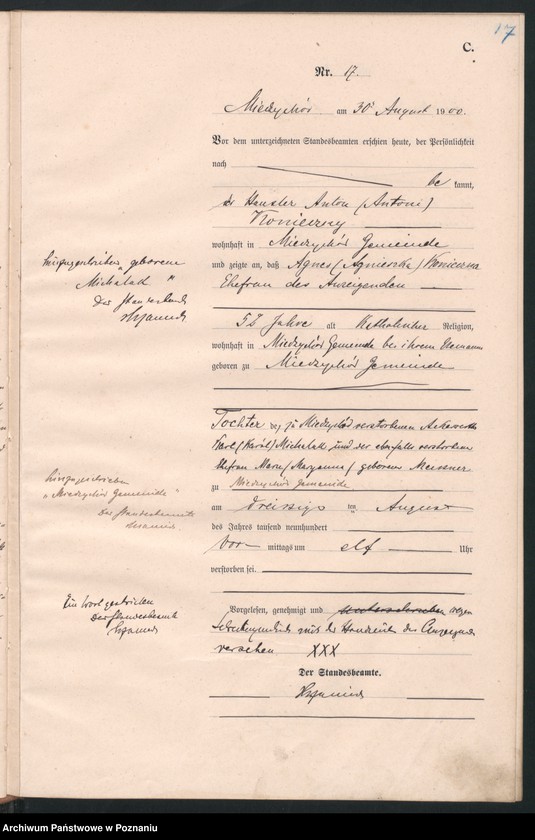 17
C.
Nr. 17.
am 30 August 1900.
Vor dem unterzeichneten Standesbeamten erschien heute, der Persönlichkeit
nach
be kannt,
der Haeusler Anton (Antoni)
Konieczny
wohnhaft in Miedzychód Gemeinde
und zeigte an, daß Agnes (Agnieszka) Konieczna
Ehefrau des Anzeigenden
58 Jahre alt Katholischer Religion,
wohnhaft in Gemeinde bei ihrem Ehemann
geboren zu Gemeinde
hinzugeschrieben „geborenen
Michalak"
Der Standesbeamte
Tochter des zu verstorbenen
Karl (Karól) Michalak und der ebenfalls verstorbenen
Ehefrau Marie (Maryanna) geborene Meissner
zu Gemeinde
hinzugeschrieben
Gemeinde"
Der Standesbeamte
am dreissigsten August
des Jahres tausend neunhundert
Vor mittags um elf Uhr
verstorben sei.
Ein Wort gestrichen
Der Standesbeamte
Vorgelesen, genehmigt und unterschrieben wegen
mit den Handzeichen des Anzeigenden
versehen XXX
Der Standesbeamte.
Archiwum Państwowe w Poznaniu